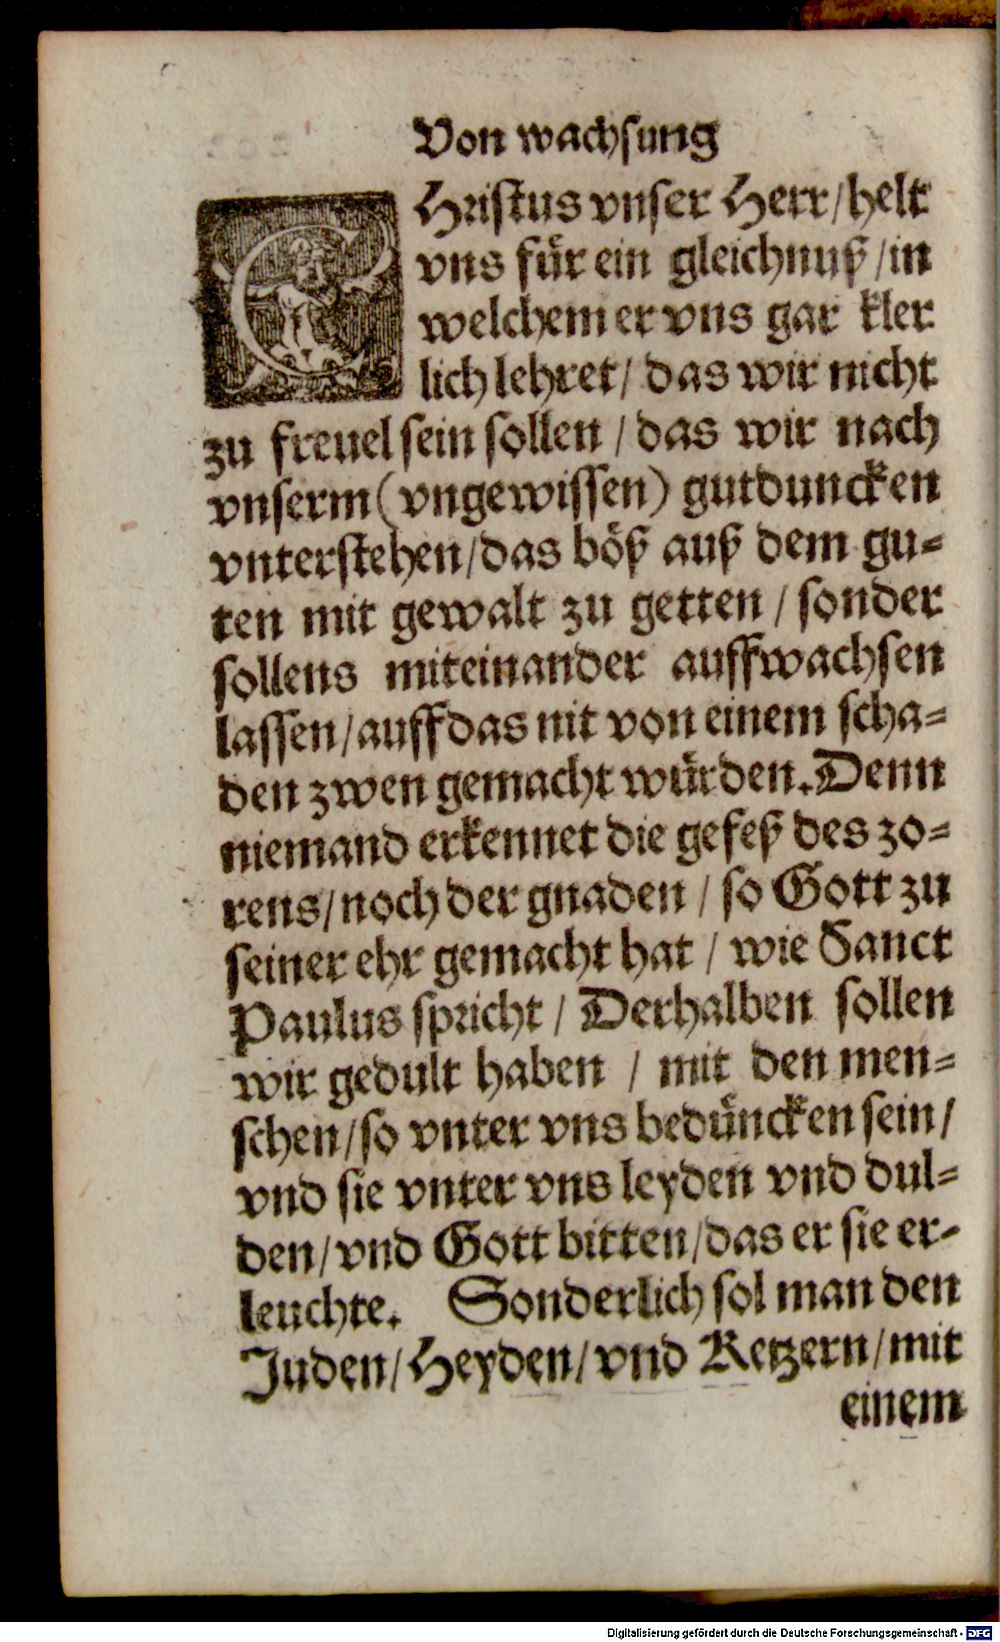 Von wachsung
CHristus vnser Herr/helt
vns fuͤr ein gleichnuß/in
welchem er vns gar kler
lich lehret/ das wir nicht
zu freuel sein sollen / das wir nach
vnserm (vngewissen) gutduncken
vnterstehen/das boͤß auß dem gu-
ten mit gewalt zu getten / sonder
sollens miteinander auffwachsen
lassen/auff das nit von einem scha-
den zwen gemacht wuͤrden. Denn
niemand erkennet die gefeß des zo-
rens/noch der gnaden / so Gott zu
seiner ehr gemacht hat / wie Sanct
Paulus spricht / Derhalben sollen
wir gedult haben / mit den men-
schen/so vnter vns beduͤncken sein/
vnd sie vnter vns leyden vnd dul-
den/vnd Gott bitten/das er sie er-
leuchte. Sonderlich sol man den
Juden/Heyden/vnd Ketzern/mit
einem
Digitalisierung gefördert durch die Deutsche Forschungsgemeinschaft - DFG